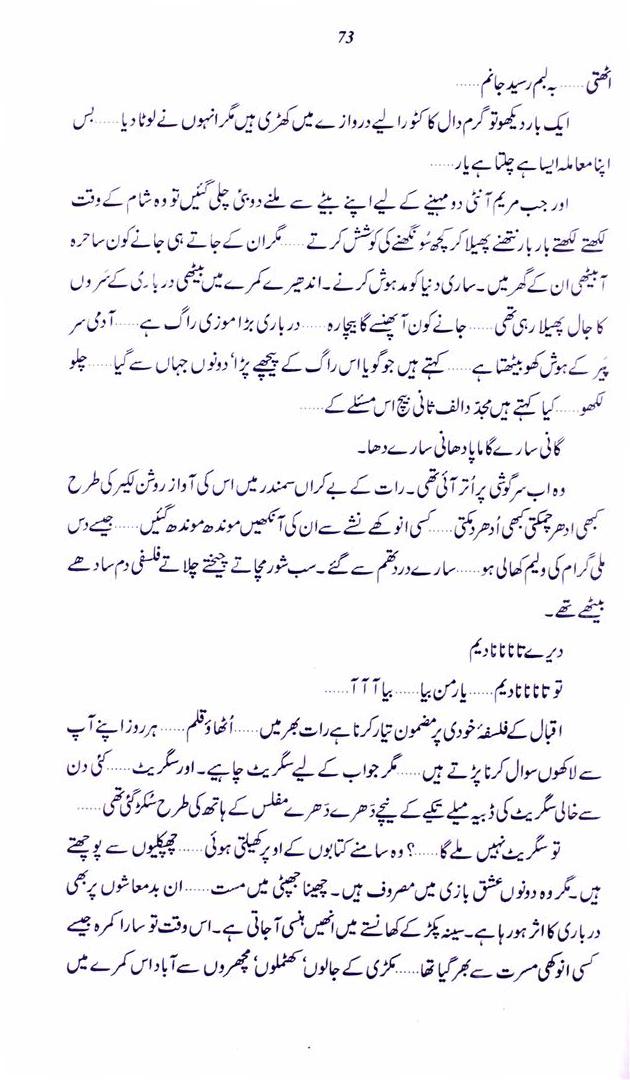 73
اٹھتی ...... بہ لبم رسید جانم ......
ایک بار دیکھو تو گرم دال کا کٹورا لیے دروازے میں کھڑی ہیں مگر انہوں نے لوٹا دیا ...... بس
اپنا معاملہ ایسا ہے چلتا ہے یار ......
اور جب مریم آنٹی دو مہینے کے لیے اپنے بیٹے سے ملنے دوبئی چلی گئیں تو وہ شام کے وقت
لکھتے لکھتے بار بار نتھنے پھیلا کر کچھ سُونگھنے کی کوشش کرتے ...... مگر ان کے جاتے ہی جانے کون ساحرہ
آ بیٹھی ان کے گھر میں۔ ساری دنیا کو مدہوش کرنے۔ اندھیرے کمرے میں بیٹھی درباری کے سُروں
کا جال پھیلا رہی تھی ...... جانے کون آ پھنسے گا بیچارہ ...... درباری بڑا موزی راگ ہے ...... آدمی سر
پَیر کے ہوش کھو بیٹھتا ہے ...... کہتے ہیں جو گویا اس راگ کے پیچھے پڑا، دونوں جہاں سے گیا ...... چلو
لکھو ...... کیا کہتے ہیں مجدّد الف ثانی بیچ اس مسئلے کے ......
گانی سارے گاما پا دھانی سارے دھا۔
وہ اب سرگوشی پر اُتر آئی تھی۔ رات کے بے کراں سمندر میں اس کی آواز روشن لکیر کی طرح
کبھی اِدھر چمکتی کبھی اُدھر دمکتی ...... کسی انوکھے نشے سے ان کی آنکھیں موندھ موندھ گئیں ...... جیسے دس
ملی گرام کی ولیم کھا لی ہو ...... سارے درد تھم سے گئے۔ سب شور مچاتے چیختے چلاتے فلسفی دم سادھے
بیٹھے تھے۔
دیرے تا نا نا نا دیم
تو تا نا نا نا دیم ...... یار من بیا ...... بیا آ آ آ ......
اقبال کے فلسفۂ خودی پر مضمون تیار کرنا ہے رات بھر میں ...... اُٹھاؤ قلم ...... ہر روز اپنے آپ
سے لاکھوں سوال کرنا پڑتے ہیں ...... مگر جواب کے لیے سگریٹ چاہیے۔ اور سگریٹ ...... کئی دن
سے خالی سگریٹ کی ڈبیہ میلے تکیے کے نیچے دَھرے دَھرے مفلس کے ہاتھ کی طرح سُکڑ گئی تھی ......
تو سگریٹ نہیں ملے گا ......؟ وہ سامنے کتابوں کے اوپر کھیلتی ہوئی ...... چھپکلیوں سے پوچھتے
ہیں۔ مگر وہ دونوں عشق بازی میں مصروف ہیں۔ چھینا جھپٹی میں مست ...... ان بدمعاشوں پر بھی
درباری کا اثر ہو رہا ہے۔ سینہ پکڑ کے کھانستے میں انھیں ہنسی آ جاتی ہے۔ اس وقت تو سارا کمرہ جیسے
کسی انوکھی مسرت سے بھر گیا تھا ...... مکڑی کے جالوں، کھٹملوں، مچھروں سے آباد اس کمرے میں